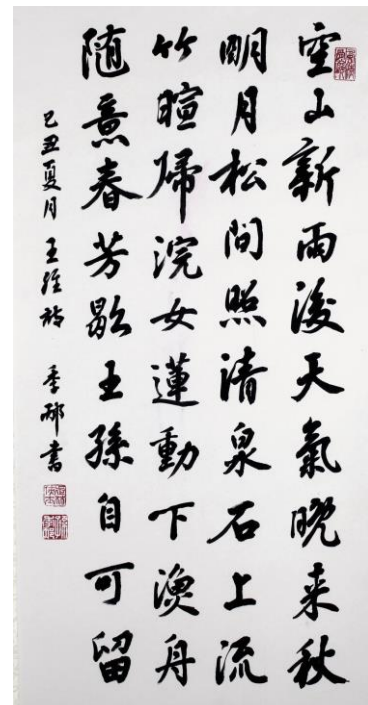 空山新雨後天氣晚来秋
明月松間照清泉石上流
竹喧歸浣女蓮動下漁舟
随意春芳歇王孫自可留
己丑夏月 王維詩 季邴書